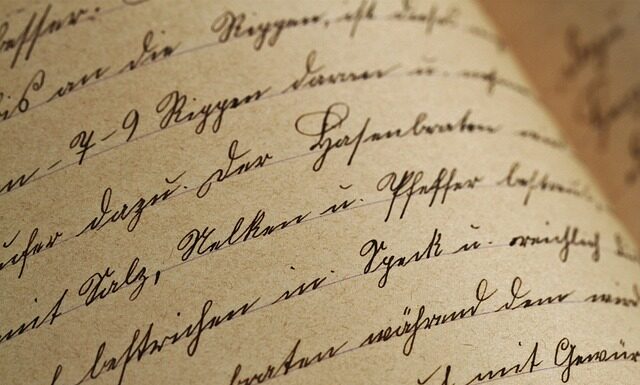 besser.
bis an die Rippen, ist dieses
- 7 - 9 Rippen daran u.
dazu. Der Hasenbraten
mit Salz, Nelken u. Pfeffer bestreut
bestrichen in. Speck u. reichlich
braten während dem wird
mit Gewür